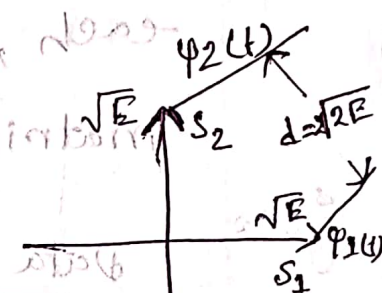 φ2(t)
√E
S2
d=√2E
√E
φ1(t)
S1